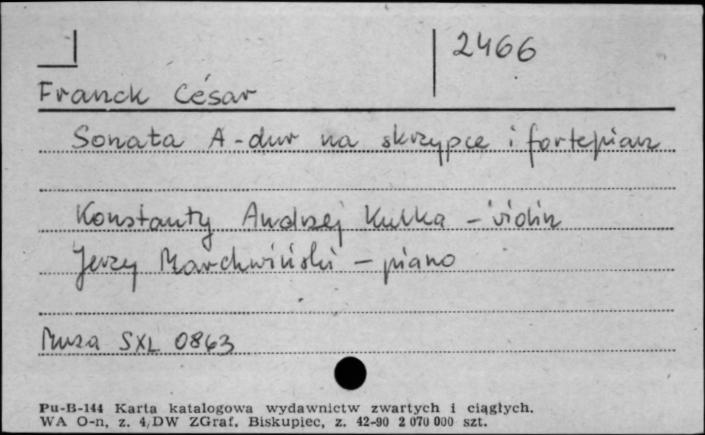 2466
Franck César
Sonata A-dur na skrzypce i fortepian
Konstanty Andrzej Kulka - violin
Jerzy Marchwiński - piano
Muza SXL 0863
Pu-B-144 Karta katalogowa wydawnictw zwartych i ciągłych.
WA O-n, z. 4/DW ZGraf. Biskupiec, z. 42-90 2 070 000 szt.